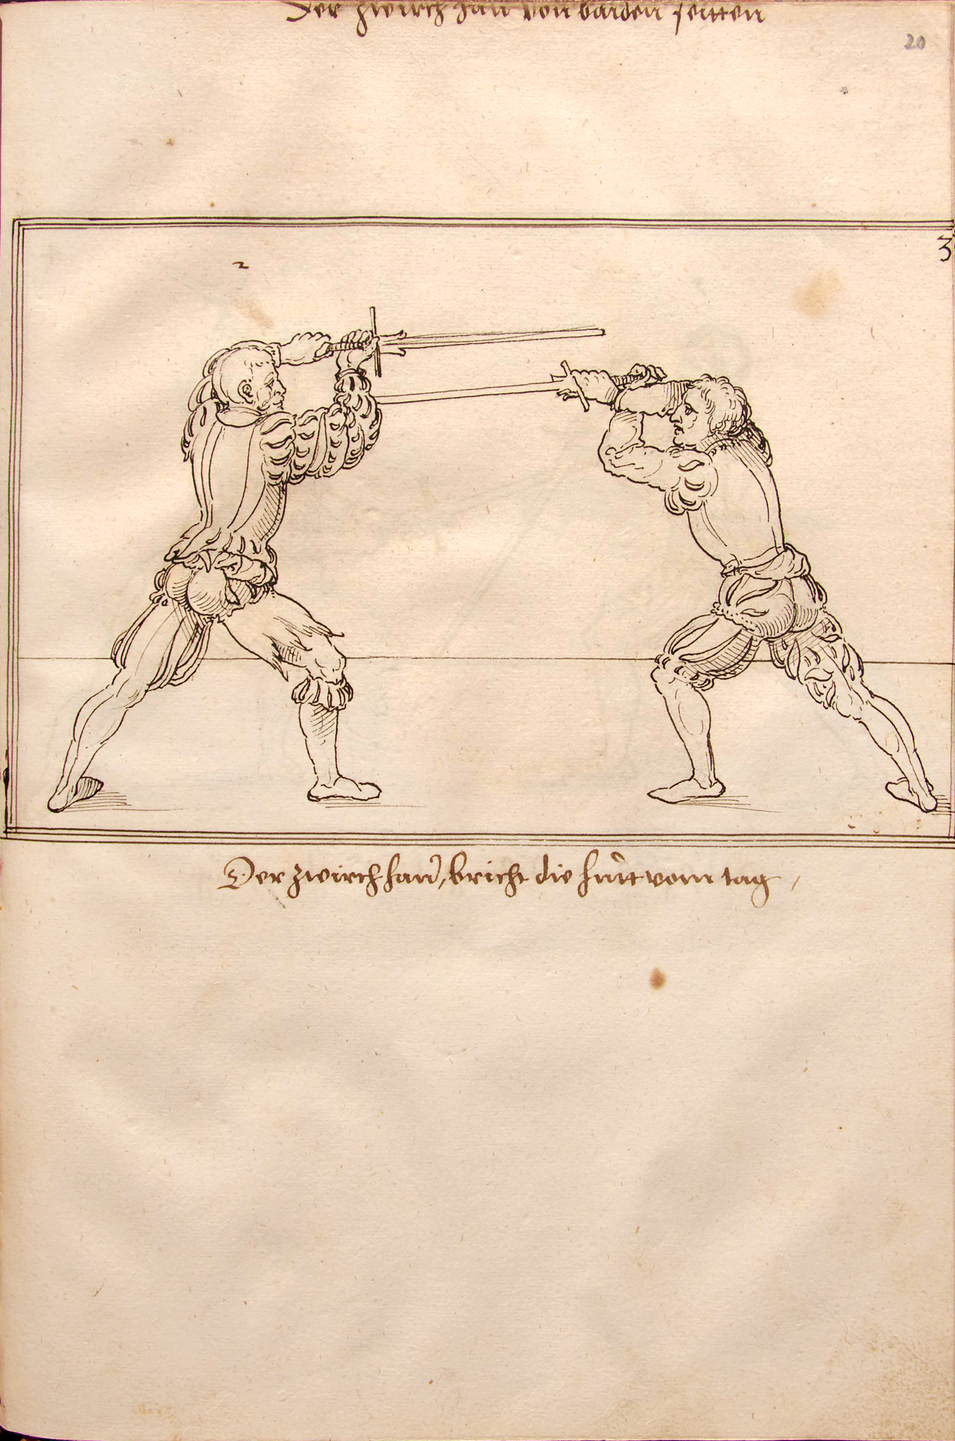 Der zwirch hau von baiden seitten
20
2
3
Der zwirch hau, bricht die hůtt vom tag,